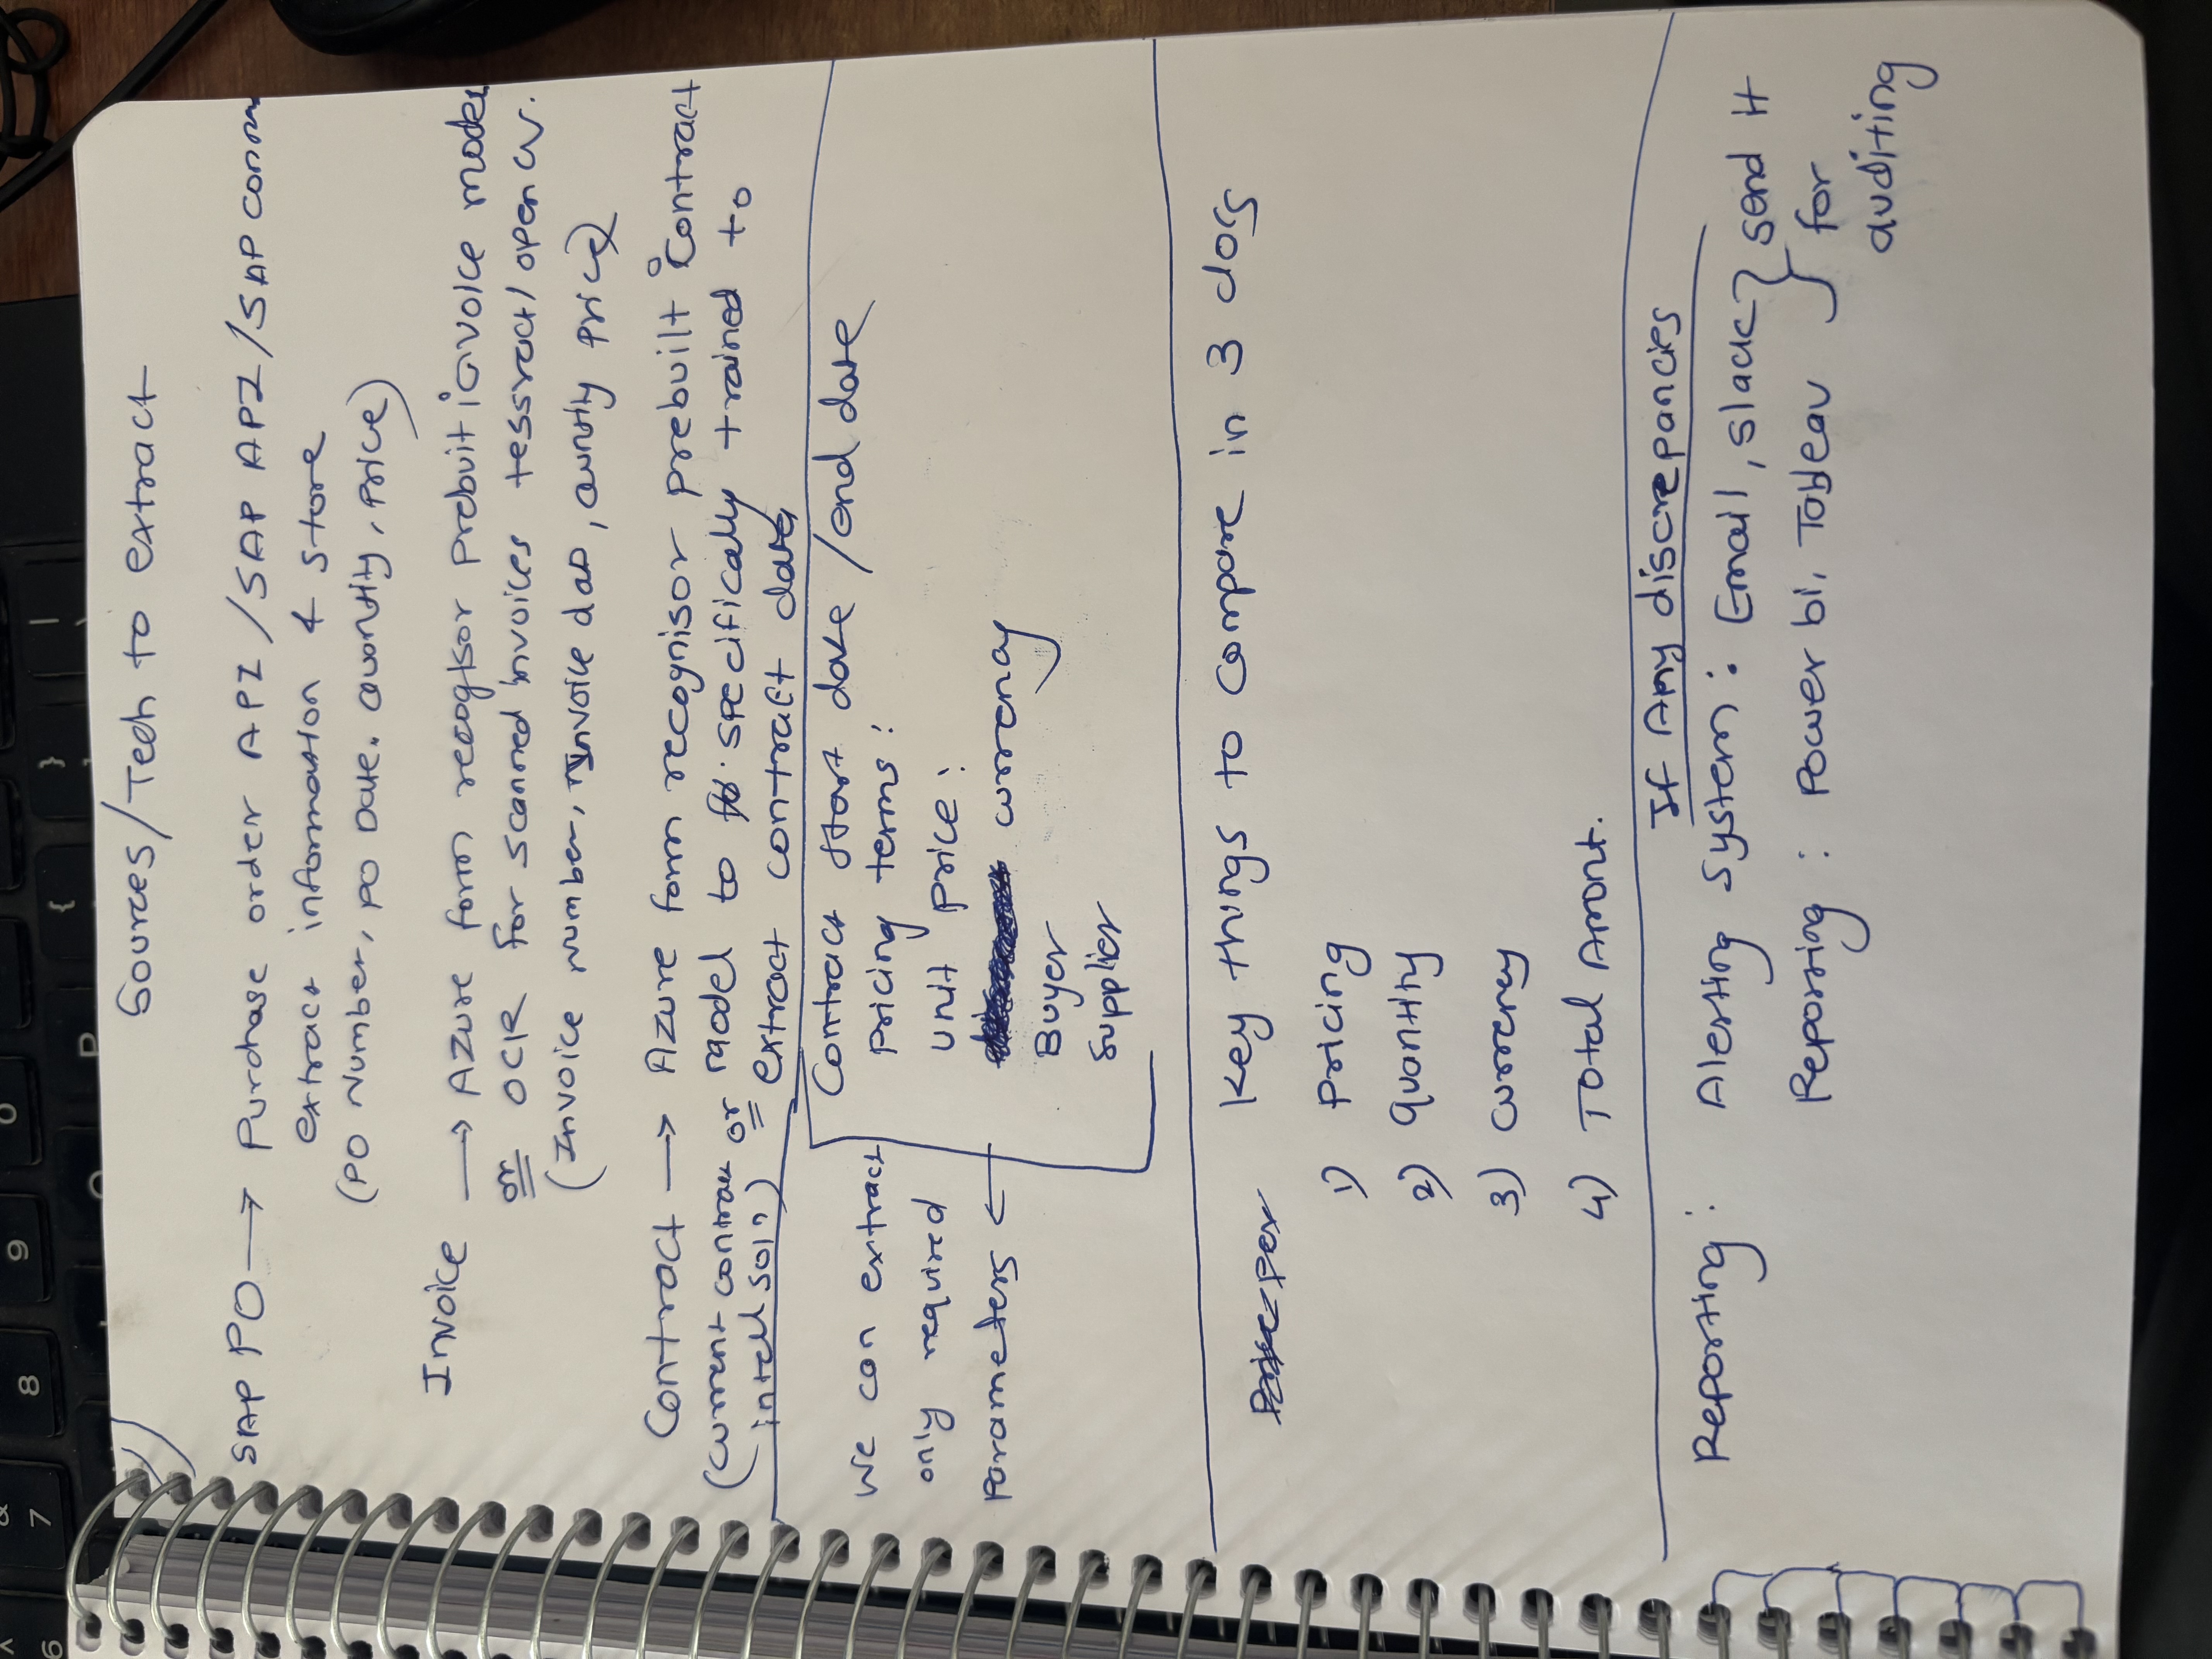 6
& 7
8
9
0
{
}
|
P
Sources/Tech to extract
SAP PO → Purchase order API /SAP API /SAP
extract information & store
(PO Number, PO Date. Quantity, Price)
Invoice → Azure form recogisor prebuit invoice model
or OCR for scanned invoices tessract/ open CV.
(Invoice Number, Invoice dae, Quntity Price)
Contract → Azure form recognisor prebuilt Contract
(current contract intell Soln) or model to specifically trained to
extract contract data
Contract start date /end date
We can extract only required Parameters ←
Pricing terms :
Unit Price :
currency
Buyer
Supplier
Key things to compare in 3 docs
1) Pricing
2) Quantity
3) Currency
4) Total Amont.
If Any discrepancies
Reporting : Alerting System : Email, slack } send it
Reporting : Power bi, Tableau for
auditing